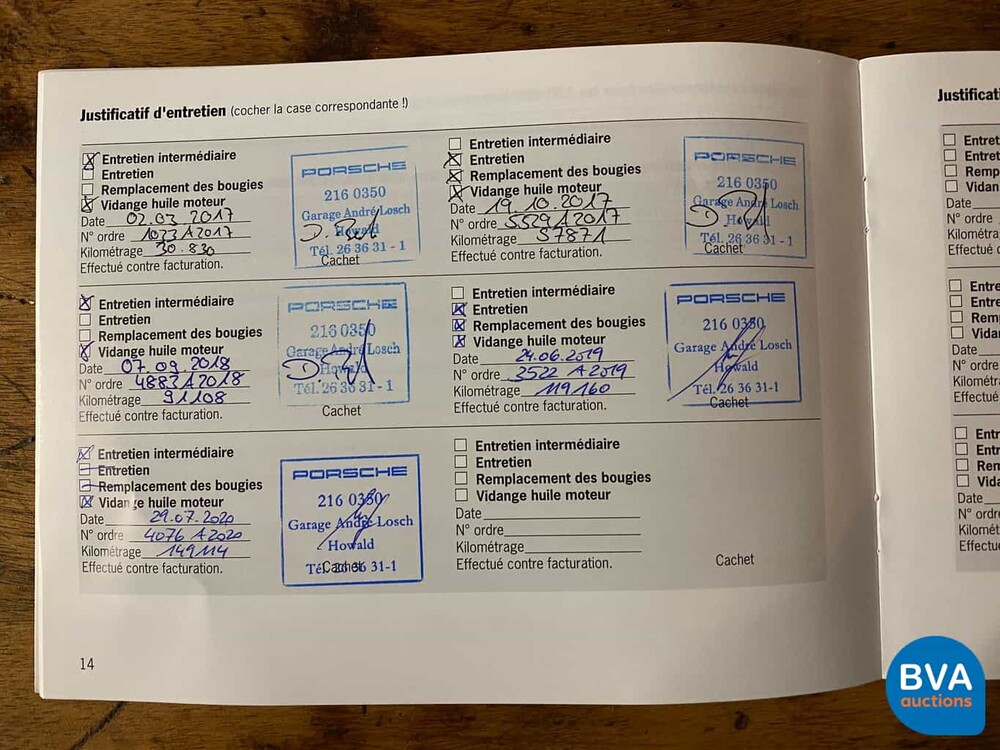 Justificatif d'entretien (cocher la case correspondante !)
Entretien intermédiaire
Entretien
Remplacement des bougies
Vidange huile moteur
Date 02.03 2017
N° ordre 1023 A 2017
Kilométrage 30.830
Effectué contre facturation.
PORSCHE
216 0350
Garage André Losch
Howald
Tél. 26 36 31 - 1
Cachet
Entretien intermédiaire
Entretien
Remplacement des bougies
Vidange huile moteur
Date 19.10.2017
N° ordre 5529 A 2017
Kilométrage 57871
Effectué contre facturation.
PORSCHE
216 0350
Garage André Losch
Howald
Tél. 26 36 31 - 1
Cachet
Entretien intermédiaire
Entretien
Remplacement des bougies
Vidange huile moteur
Date 07.09.2018
N° ordre 4883 A 2018
Kilométrage 91108
Effectué contre facturation.
PORSCHE
216 0350
Garage André Losch
Howald
Tél. 26 36 31 - 1
Cachet
Entretien intermédiaire
Entretien
Remplacement des bougies
Vidange huile moteur
Date 24.06.2019
N° ordre 3522 A 2019
Kilométrage 119160
Effectué contre facturation.
PORSCHE
216 0350
Garage André Losch
Howald
Tél. 26 36 31-1
Cachet
Entretien intermédiaire
Entretien
Remplacement des bougies
Vidange huile moteur
Date 29.07.2020
N° ordre 4076 A 2020
Kilométrage 149114
Effectué contre facturation.
PORSCHE
216 0350
Garage André Losch
Howald
Tél. 26 36 31-1
Cachet
Entretien intermédiaire
Entretien
Remplacement des bougies
Vidange huile moteur
Date
N° ordre
Kilométrage
Effectué contre facturation.
Cachet
14
BVA
auctions